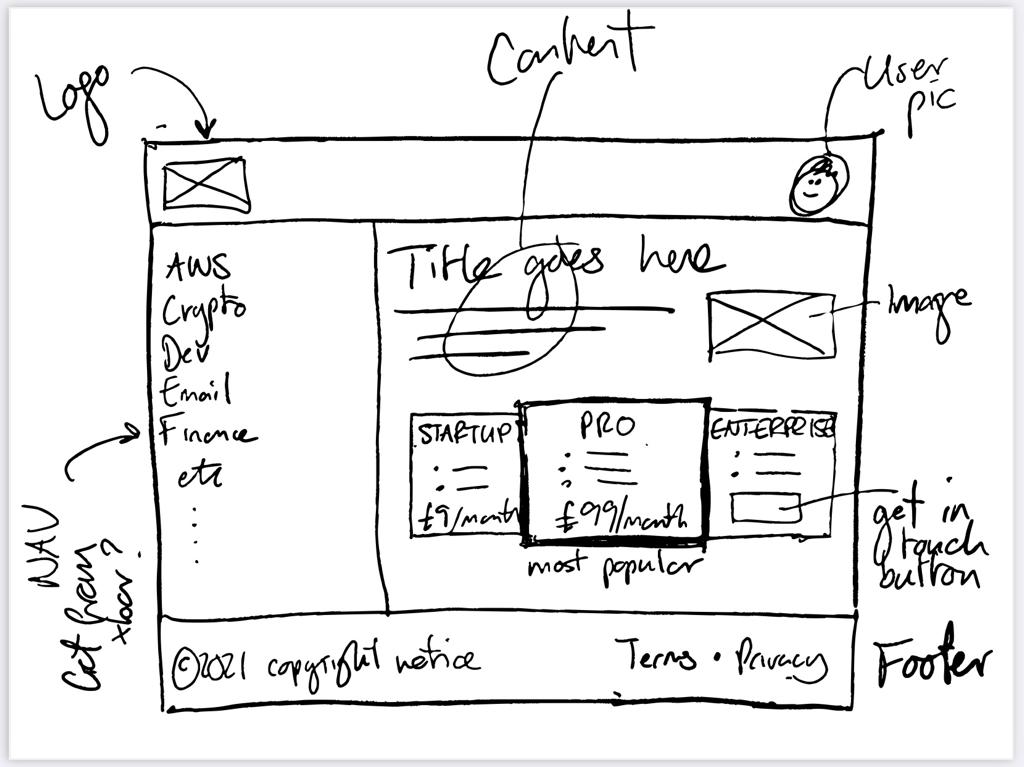 Content
Logo
User
pic
AWS
Crypto
Dev
Email
Finance
etc
Title goes here
Image
STARTUP
£9/month
PRO
£99/month
most popular
ENTERPRISE
get in
touch
button
NAV
Get from
xbar?
©2021 copyright notice
Terms • Privacy
Footer